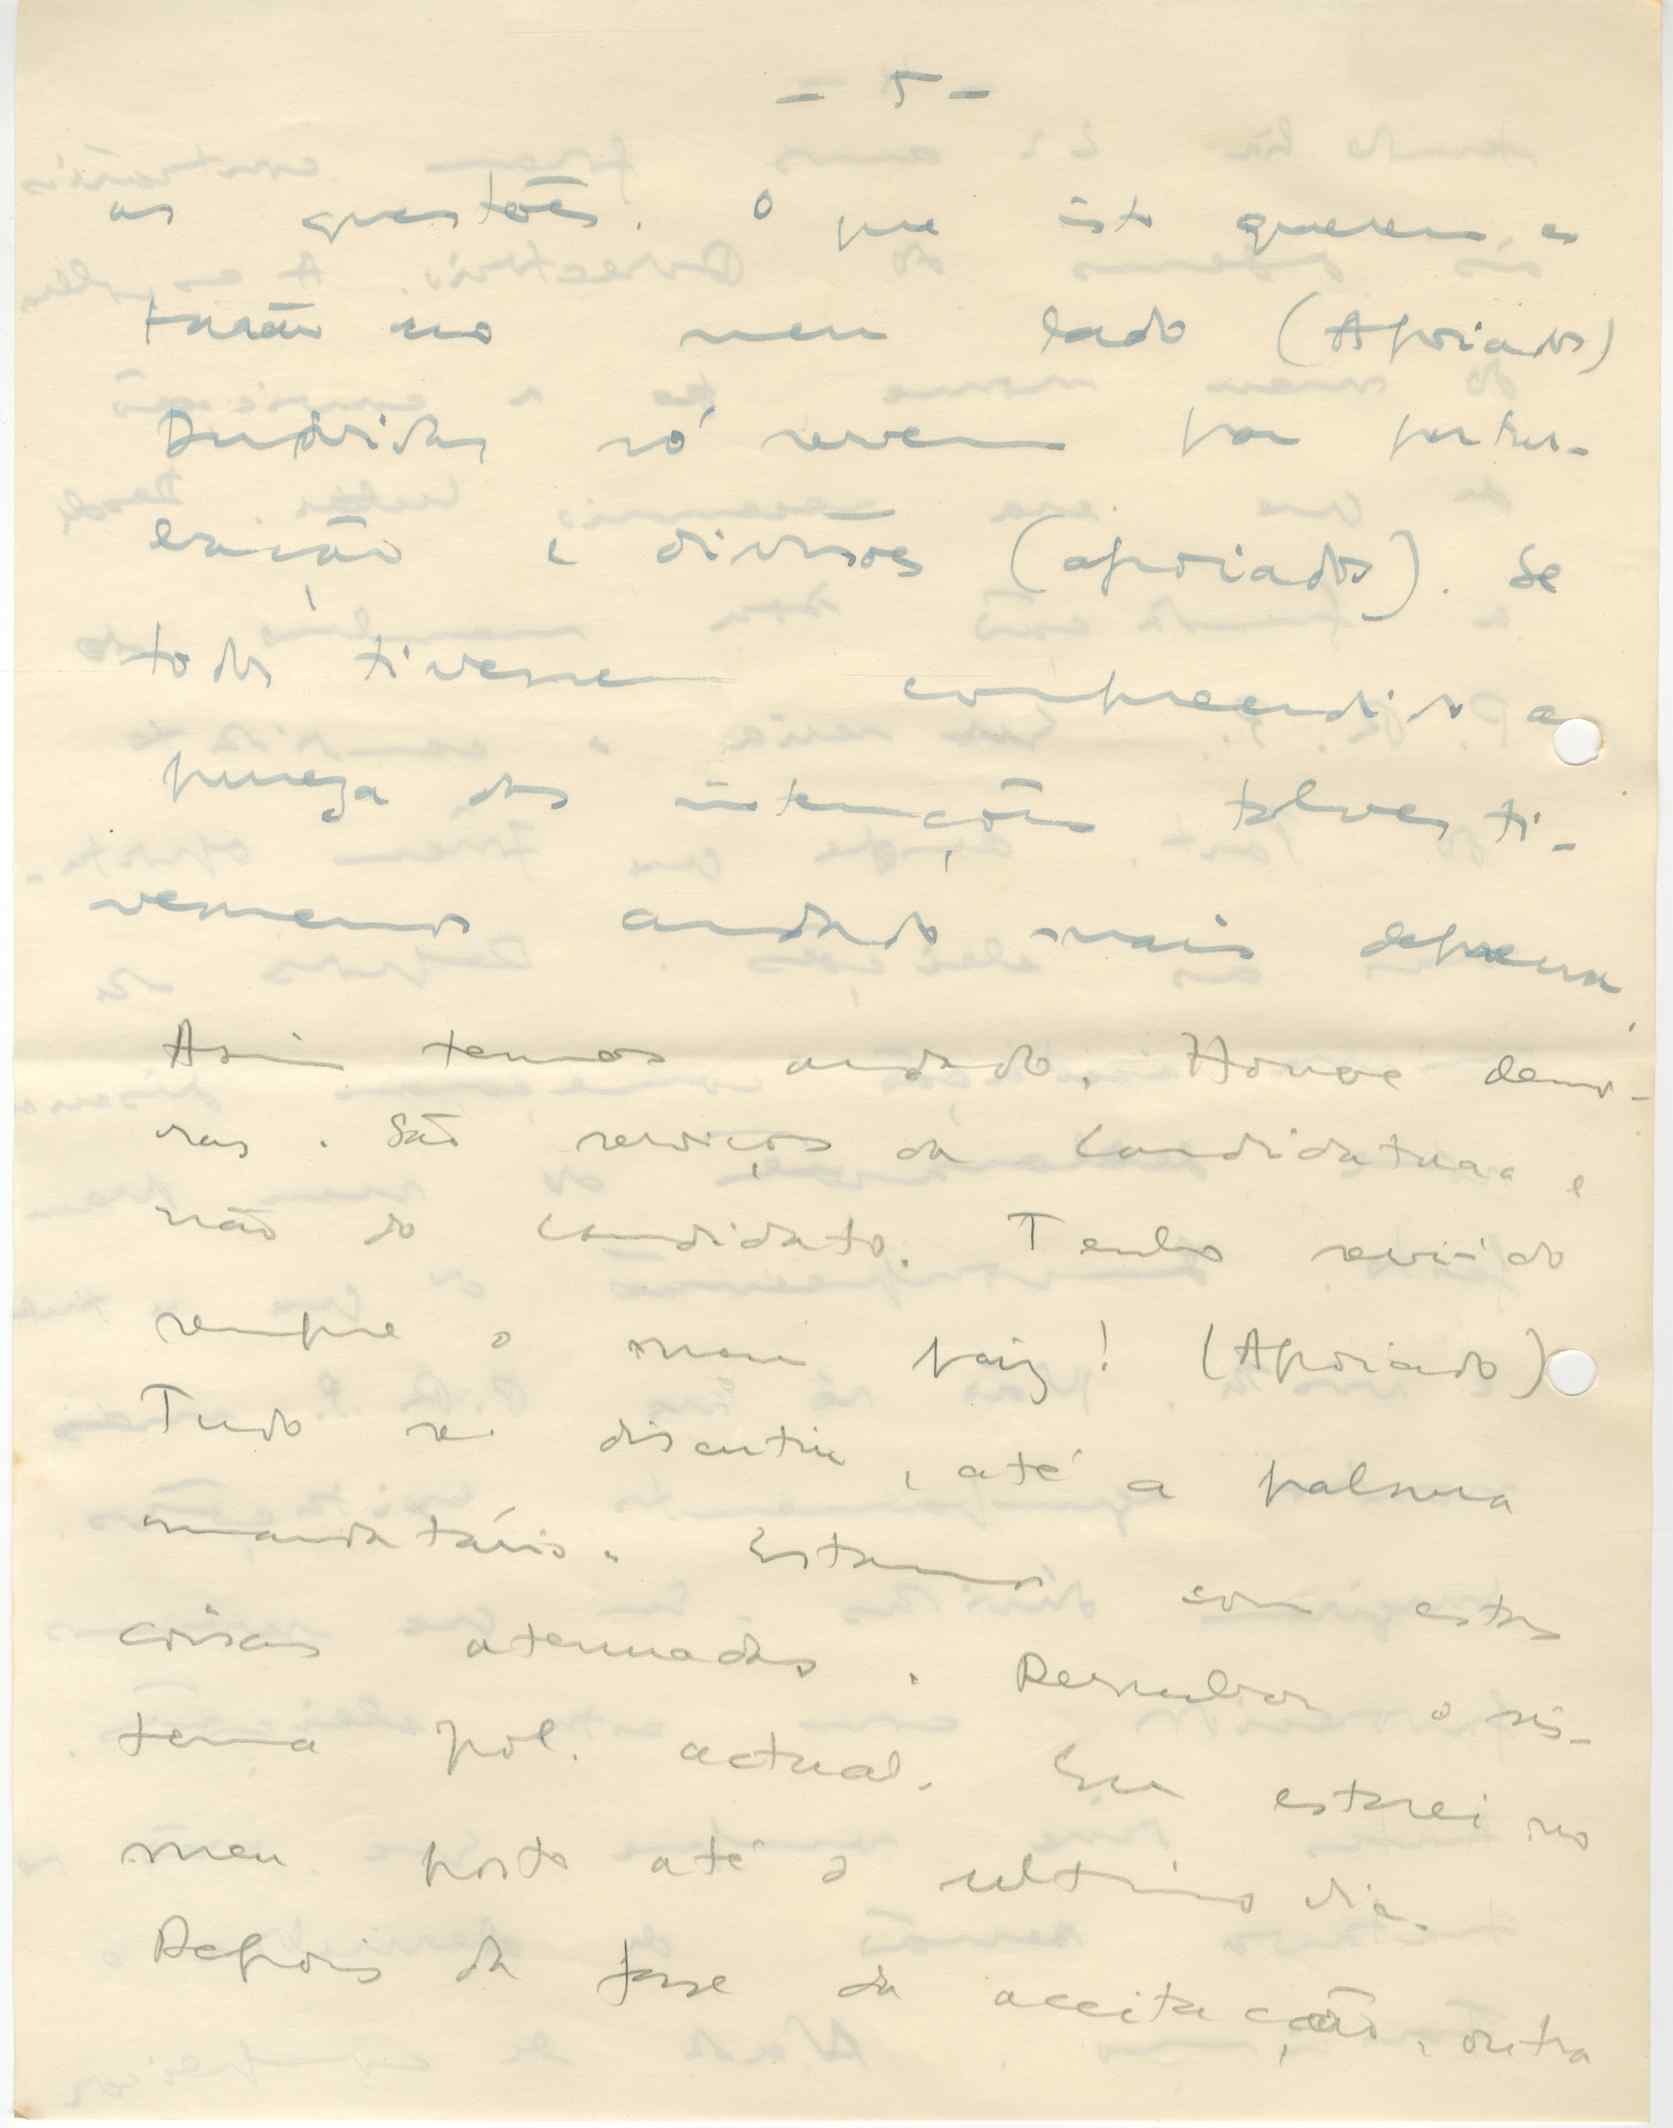 - 5 -
as questões. O que isto querem, es
tarão ao meu lado (Apoiados)
Duvidas só servem por pertur-
bação e divisões (apoiados). Se
todos tivessem compreendido a
pureza das intenções talves ti-
vessemos andado mais depressa,
Assim temos andado. Houve demo-
ras. São serviços da candidatura e
não do candidato. Tenho servido
sempre o meu paiz! (Apoiado)
Tudo se discutiu, até a palavra
mandatário. Estamos com estas
coisas atenuadas. Derrubar o sis-
tema pol. actual. Eu estarei no
meu posto até o ultimo dia.
Depois da fase da aceitação, outra